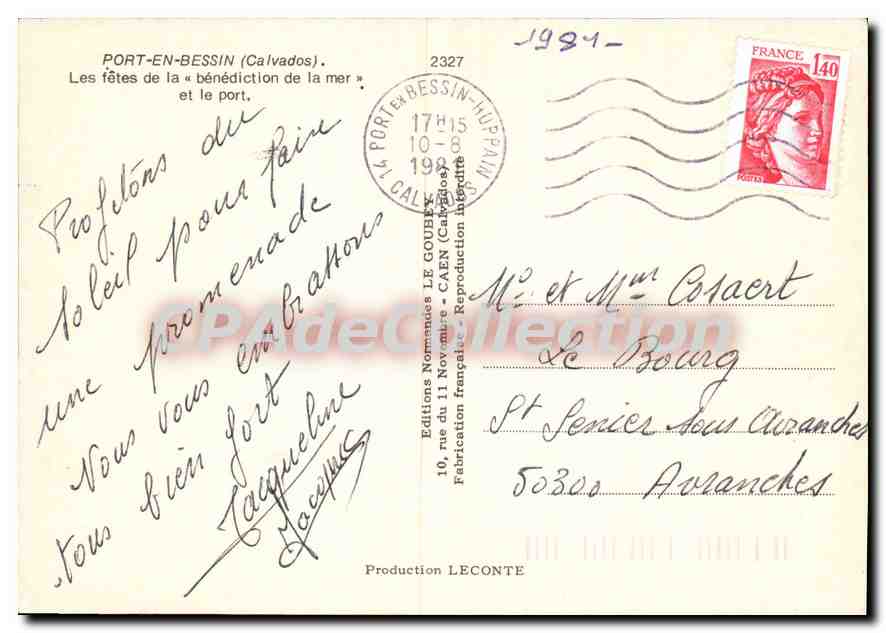 1981-
PORT-EN-BESSIN (Calvados).
Les fêtes de la « bénédiction de la mer »
et le port.
2327
14 PORT EN BESSIN-HUPPAIN
17H15
10-8
1981
CALVADOS
FRANCE
1,40
POSTES
Profitons du
soleil pour faire
une promenade
Nous vous embrassons
tous bien fort
Jacqueline
Jacques
Editions Normandes LE GOUBEY
10, rue du 11 Novembre - CAEN (Calvados)
Fabrication française - Reproduction interdite
Mr et Mme Cosaert
Le Bourg
St Senier sous Avranches
50300 Avranches
CPAdeCollection
Production LECONTE